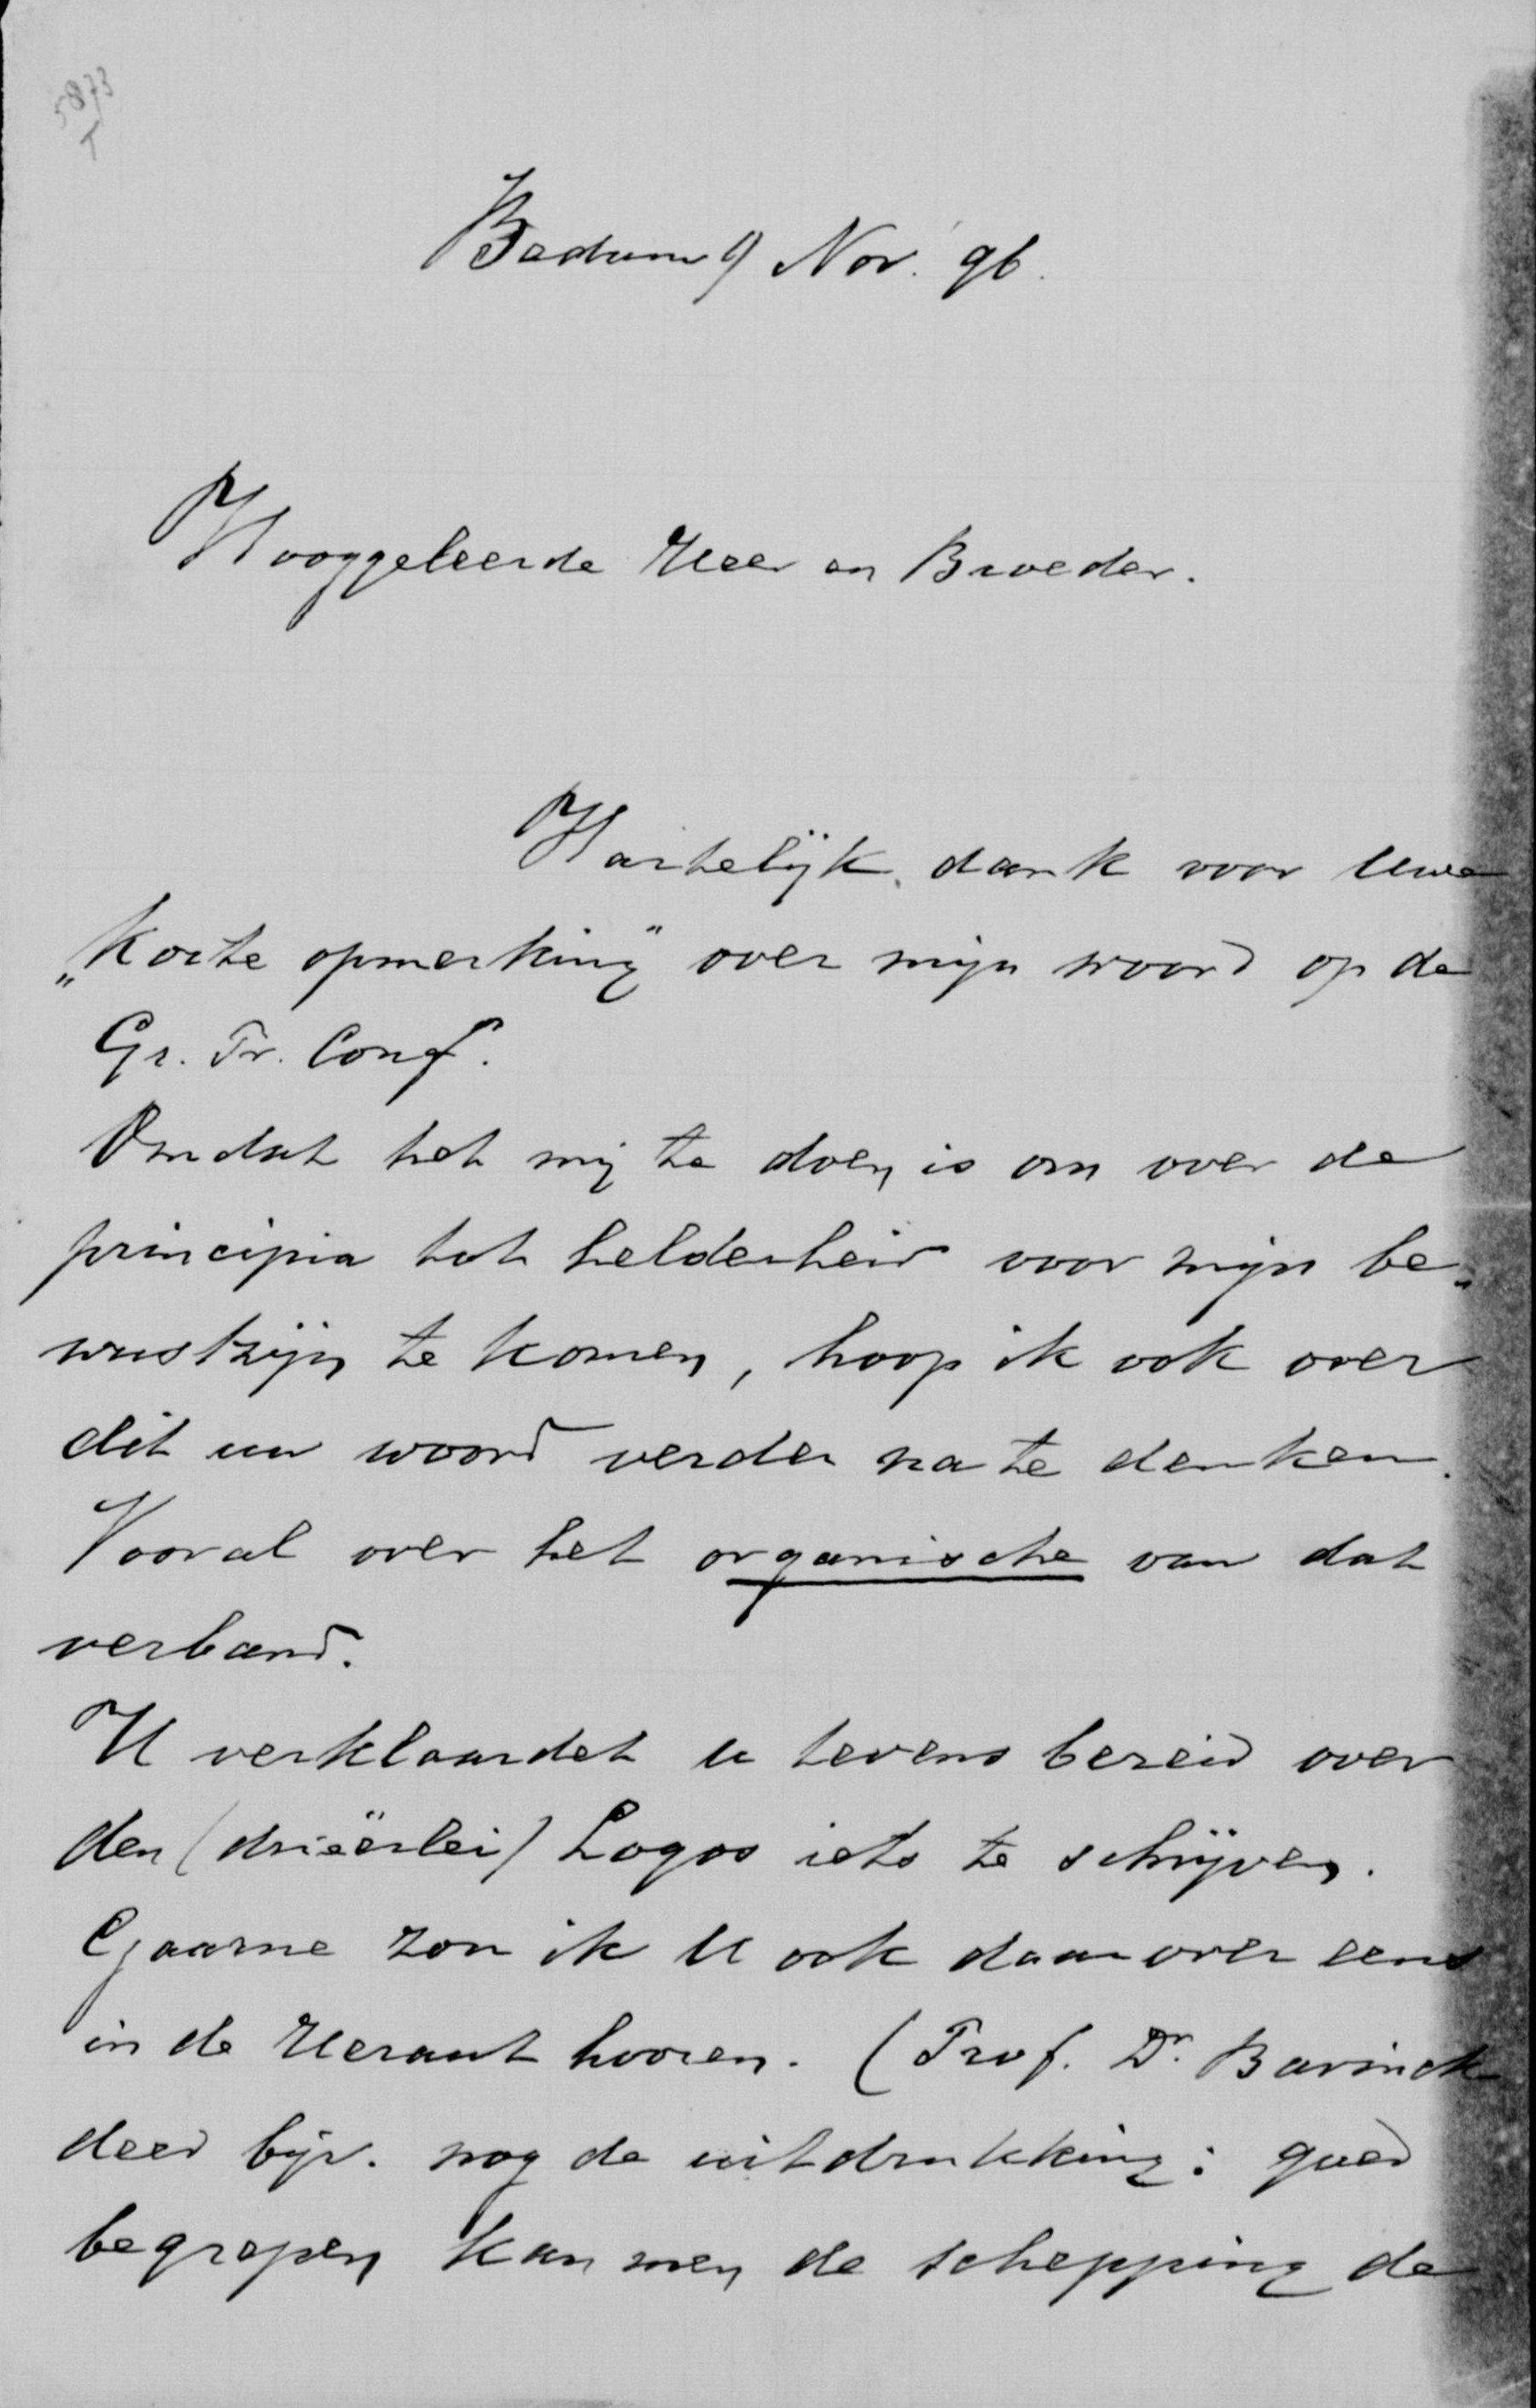 5873
T
Bedum 9 Nov. 96.
Hooggeleerde Heer en Broeder.
Hartelijk dank voor Uwe
„korte opmerking” over mijn woord op de
Gr. Pr. Conf.
Omdat het mij te doen is om over de
principia tot helderheid voor mijn be-
wustzijn te komen, hoop ik ook over
dit uw woord verder na te denken.
Vooral over het organische van dat
verband.
U verklaardet u tevens bereid over
den (drieërlei) Logos iets te schrijven.
Gaarne zou ik U ook daarover eens
in de Heraut hooren. (Prof. Dr. Bavinck
deed bijv. nog de uitdrukking: goed
begrepen kan men de schepping de